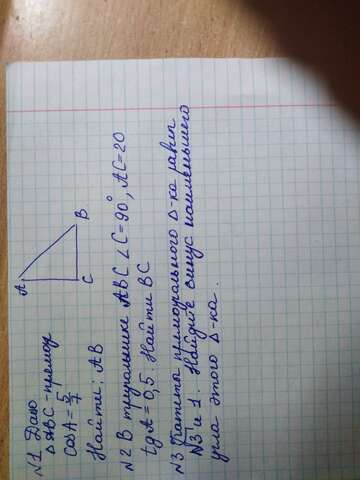 N1 Дано
A
∆ABC - прямоуг
cosA = 5/7
Найти: AB
C
B
N2 В треугольнике ABC ∠C=90°, AC=20
tgA = 0,5. Найти BC
N3 Катеты прямоугольного ∆-ка равны
√3 и 1. Найдите синус наименьшего
угла этого ∆-ка.